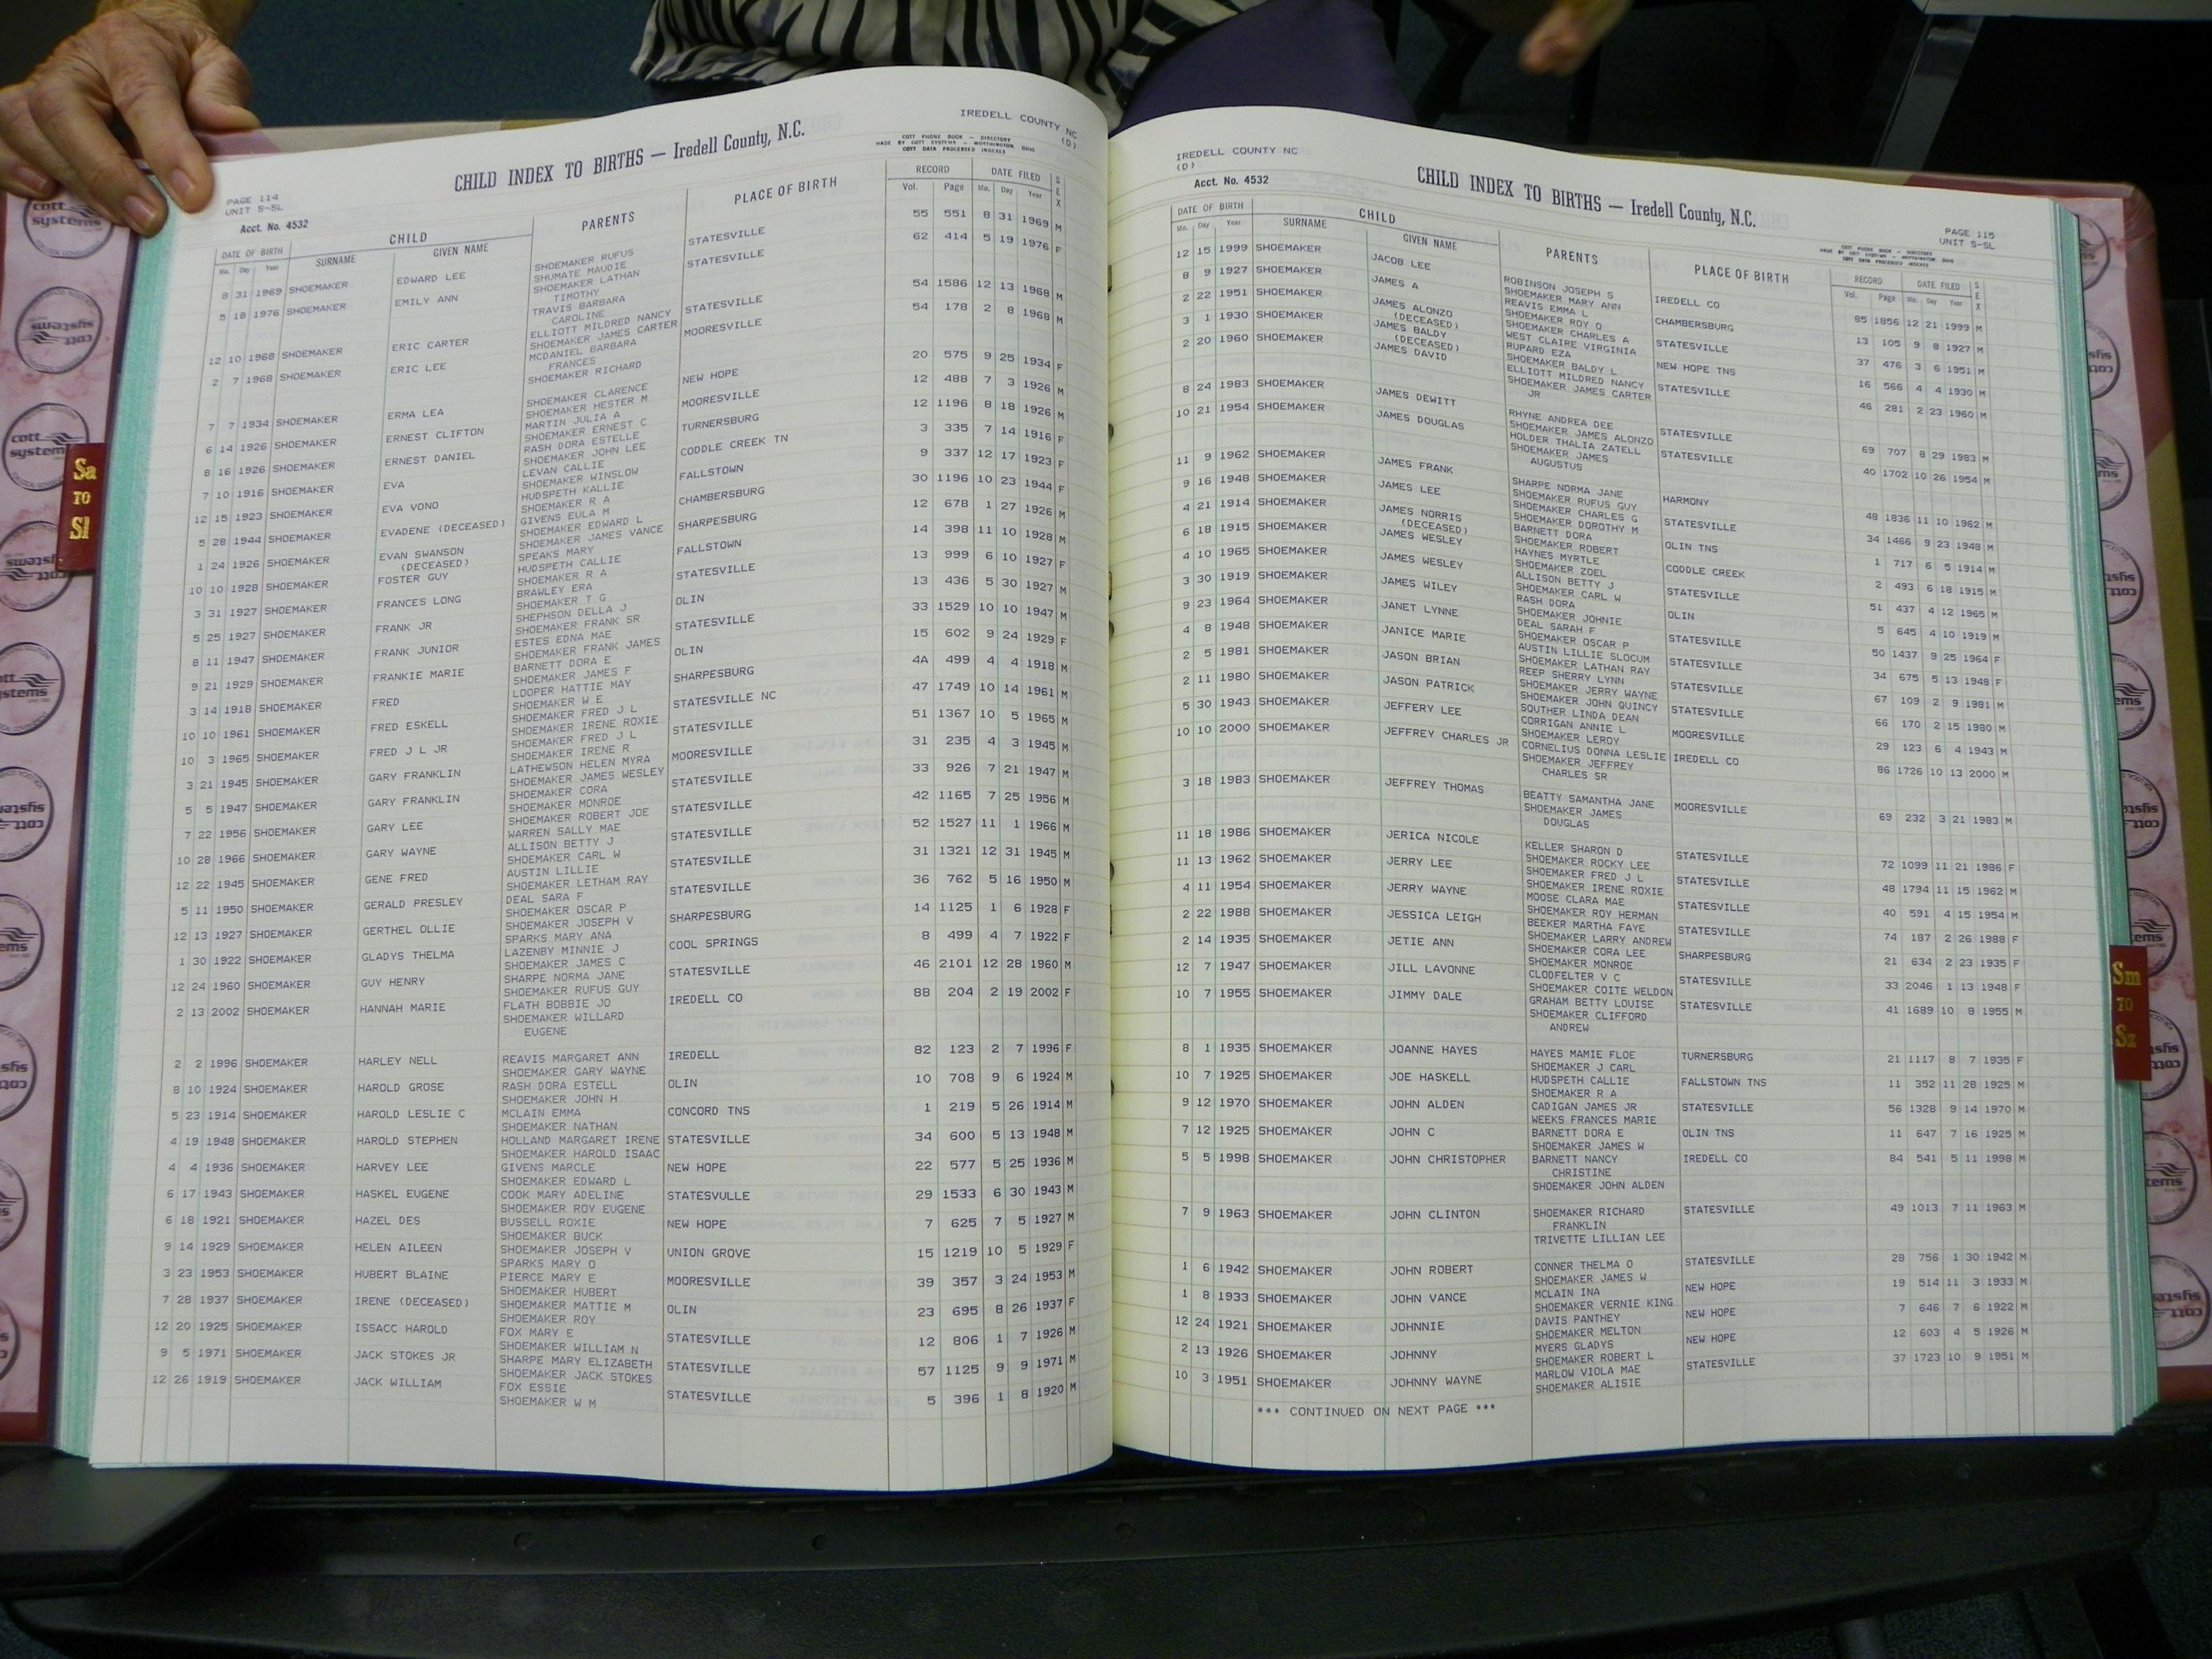 IREDELL COUNTY NC
(D)
CHILD INDEX TO BIRTHS — Iredell County, N.C.
COTT PHONE BOOK - DIRECTORY
MADE BY COTT SYSTEMS - WORTHINGTON OHIO
COTT DATA PROCESSED INDEXES
PAGE 114
UNIT S-SL
Acct. No. 4532
DATE OF BIRTH CHILD PARENTS PLACE OF BIRTH RECORD DATE FILED SEX
Mo. Day Year SURNAME GIVEN NAME Vol. Page Mo. Day Year
8 31 1969 SHOEMAKER EDWARD LEE SHOEMAKER RUFUS STATESVILLE 55 551 8 31 1969 M
SHUMATE MAUDIE
5 18 1976 SHOEMAKER EMILY ANN SHOEMAKER LATHAN STATESVILLE 62 414 5 19 1976 F
TIMOTHY
TRAVIS BARBARA
CAROLINE
12 10 1968 SHOEMAKER ERIC CARTER ELLIOTT MILDRED NANCY STATESVILLE 54 1586 12 13 1968 M
SHOEMAKER JAMES CARTER
2 7 1968 SHOEMAKER ERIC LEE MCDANIEL BARBARA MOORESVILLE 54 178 2 8 1968 M
FRANCES
SHOEMAKER RICHARD
7 7 1934 SHOEMAKER ERMA LEA SHOEMAKER CLARENCE NEW HOPE 20 575 9 25 1934 F
SHOEMAKER HESTER M
6 14 1926 SHOEMAKER ERNEST CLIFTON MARTIN JULIA A MOORESVILLE 12 488 7 3 1926 M
SHOEMAKER ERNEST C
8 16 1926 SHOEMAKER ERNEST DANIEL RASH DORA ESTELLE TURNERSBURG 12 1196 8 18 1926 M
SHOEMAKER JOHN LEE
7 10 1916 SHOEMAKER EVA LEVAN CALLIE CODDLE CREEK TN 3 335 7 14 1916 F
SHOEMAKER WINSLOW
12 15 1923 SHOEMAKER EVA VONO HUDSPETH KALLIE FALLSTOWN 9 337 12 17 1923 F
SHOEMAKER R A
5 28 1944 SHOEMAKER EVADENE (DECEASED) GIVENS EULA M CHAMBERSBURG 30 1196 10 23 1944 F
SHOEMAKER EDWARD L
1 24 1926 SHOEMAKER EVAN SWANSON SHOEMAKER JAMES VANCE SHARPESBURG 12 678 1 27 1926 M
(DECEASED) SPEAKS MARY
10 10 1928 SHOEMAKER FOSTER GUY HUDSPETH CALLIE FALLSTOWN 14 398 11 10 1928 M
SHOEMAKER R A
3 31 1927 SHOEMAKER FRANCES LONG BRAWLEY ERA STATESVILLE 13 999 6 10 1927 F
SHOEMAKER T G
5 25 1927 SHOEMAKER FRANK JR SHEPHSON DELLA J OLIN 13 436 5 30 1927 M
SHOEMAKER FRANK SR
8 11 1947 SHOEMAKER FRANK JUNIOR ESTES EDNA MAE STATESVILLE 33 1529 10 10 1947 M
SHOEMAKER FRANK JAMES
9 21 1929 SHOEMAKER FRANKIE MARIE BARNETT DORA E OLIN 15 602 9 24 1929 F
SHOEMAKER JAMES F
3 14 1918 SHOEMAKER FRED LOOPER HATTIE MAY SHARPESBURG 4A 499 4 4 1918 M
SHOEMAKER W E
10 10 1961 SHOEMAKER FRED ESKELL SHOEMAKER FRED J L STATESVILLE NC 47 1749 10 14 1961 M
SHOEMAKER IRENE ROXIE
10 3 1965 SHOEMAKER FRED J L JR SHOEMAKER FRED J L STATESVILLE 51 1367 10 5 1965 M
SHOEMAKER IRENE R
3 21 1945 SHOEMAKER GARY FRANKLIN LATHEWSON HELEN MYRA MOORESVILLE 31 235 4 3 1945 M
SHOEMAKER JAMES WESLEY
5 5 1947 SHOEMAKER GARY FRANKLIN SHOEMAKER CORA STATESVILLE 33 926 7 21 1947 M
SHOEMAKER MONROE
7 22 1956 SHOEMAKER GARY LEE SHOEMAKER ROBERT JOE STATESVILLE 42 1165 7 25 1956 M
WARREN SALLY MAE
10 28 1966 SHOEMAKER GARY WAYNE ALLISON BETTY J STATESVILLE 52 1527 11 1 1966 M
SHOEMAKER CARL W
12 22 1945 SHOEMAKER GENE FRED AUSTIN LILLIE STATESVILLE 31 1321 12 31 1945 M
SHOEMAKER LETHAM RAY
5 11 1950 SHOEMAKER GERALD PRESLEY DEAL SARA F STATESVILLE 36 762 5 16 1950 M
SHOEMAKER OSCAR P
12 13 1927 SHOEMAKER GERTHEL OLLIE SHOEMAKER JOSEPH V SHARPESBURG 14 1125 1 6 1928 F
SPARKS MARY ANA
1 30 1922 SHOEMAKER GLADYS THELMA LAZENBY MINNIE J COOL SPRINGS 8 499 4 7 1922 F
SHOEMAKER JAMES C
12 24 1960 SHOEMAKER GUY HENRY SHARPE NORMA JANE STATESVILLE 46 2101 12 28 1960 M
SHOEMAKER RUFUS GUY
2 13 2002 SHOEMAKER HANNAH MARIE FLATH BOBBIE JO IREDELL CO 88 204 2 19 2002 F
SHOEMAKER WILLARD
EUGENE
2 2 1996 SHOEMAKER HARLEY NELL REAVIS MARGARET ANN IREDELL 82 123 2 7 1996 F
SHOEMAKER GARY WAYNE
8 10 1924 SHOEMAKER HAROLD GROSE RASH DORA ESTELL OLIN 10 708 9 6 1924 M
SHOEMAKER JOHN H
5 23 1914 SHOEMAKER HAROLD LESLIE C MCLAIN EMMA CONCORD TNS 1 219 5 26 1914 M
SHOEMAKER NATHAN
4 19 1948 SHOEMAKER HAROLD STEPHEN HOLLAND MARGARET IRENE STATESVILLE 34 600 5 13 1948 M
SHOEMAKER HAROLD ISAAC
4 4 1936 SHOEMAKER HARVEY LEE GIVENS MARCLE NEW HOPE 22 577 5 25 1936 M
SHOEMAKER EDWARD L
6 17 1943 SHOEMAKER HASKEL EUGENE COOK MARY ADELINE STATESVULLE 29 1533 6 30 1943 M
SHOEMAKER ROY EUGENE
6 18 1921 SHOEMAKER HAZEL DES BUSSELL ROXIE NEW HOPE 7 625 7 5 1927 M
SHOEMAKER BUCK
9 14 1929 SHOEMAKER HELEN AILEEN SHOEMAKER JOSEPH V UNION GROVE 15 1219 10 5 1929 F
SPARKS MARY O
3 23 1953 SHOEMAKER HUBERT BLAINE PIERCE MARY E MOORESVILLE 39 357 3 24 1953 M
SHOEMAKER HUBERT
7 28 1937 SHOEMAKER IRENE (DECEASED) SHOEMAKER MATTIE M OLIN 23 695 8 26 1937 F
SHOEMAKER ROY
12 20 1925 SHOEMAKER ISSACC HAROLD FOX MARY E STATESVILLE 12 806 1 7 1926 M
SHOEMAKER WILLIAM N
9 5 1971 SHOEMAKER JACK STOKES JR SHARPE MARY ELIZABETH STATESVILLE 57 1125 9 9 1971 M
SHOEMAKER JACK STOKES
12 26 1919 SHOEMAKER JACK WILLIAM FOX ESSIE STATESVILLE 5 396 1 8 1920 M
SHOEMAKER W M
IREDELL COUNTY NC
(D)
Acct. No. 4532
CHILD INDEX TO BIRTHS — Iredell County, N.C.
PAGE 115
UNIT S-SL
COTT PHONE BOOK - DIRECTORY
MADE BY COTT SYSTEMS - WORTHINGTON OHIO
COTT DATA PROCESSED INDEXES
DATE OF BIRTH CHILD PARENTS PLACE OF BIRTH RECORD DATE FILED SEX
Mo. Day Year SURNAME GIVEN NAME Vol. Page Mo. Day Year
12 15 1999 SHOEMAKER JACOB LEE ROBINSON JOSEPH S IREDELL CO 85 1856 12 21 1999 M
SHOEMAKER MARY ANN
8 9 1927 SHOEMAKER JAMES A REAVIS EMMA L CHAMBERSBURG 13 105 9 8 1927 M
SHOEMAKER ROY O
2 22 1951 SHOEMAKER JAMES ALONZO SHOEMAKER CHARLES A STATESVILLE 37 476 3 6 1951 M
(DECEASED) WEST CLAIRE VIRGINIA
3 1 1930 SHOEMAKER JAMES BALDY RUPARD EZA NEW HOPE TNS 16 566 4 4 1930 M
(DECEASED) SHOEMAKER BALDY L
2 20 1960 SHOEMAKER JAMES DAVID ELLIOTT MILDRED NANCY STATESVILLE 46 281 2 23 1960 M
SHOEMAKER JAMES CARTER
JR
8 24 1983 SHOEMAKER JAMES DEWITT RHYNE ANDREA DEE STATESVILLE 69 707 8 29 1983 M
SHOEMAKER JAMES ALONZO
10 21 1954 SHOEMAKER JAMES DOUGLAS HOLDER THALIA ZATELL STATESVILLE 40 1702 10 26 1954 M
SHOEMAKER JAMES
AUGUSTUS
11 9 1962 SHOEMAKER JAMES FRANK SHARPE NORMA JANE HARMONY 48 1836 11 10 1962 M
SHOEMAKER RUFUS GUY
9 16 1948 SHOEMAKER JAMES LEE SHOEMAKER CHARLES G STATESVILLE 34 1466 9 23 1948 M
SHOEMAKER DOROTHY M
4 21 1914 SHOEMAKER JAMES NORRIS BARNETT DORA OLIN TNS 1 717 6 5 1914 M
(DECEASED) SHOEMAKER ROBERT
6 18 1915 SHOEMAKER JAMES WESLEY HAYNES MYRTLE CODDLE CREEK 2 493 6 18 1915 M
SHOEMAKER ZOEL
4 10 1965 SHOEMAKER JAMES WESLEY ALLISON BETTY J STATESVILLE 51 437 4 12 1965 M
SHOEMAKER CARL W
3 30 1919 SHOEMAKER JAMES WILEY RASH DORA OLIN 5 645 4 10 1919 M
SHOEMAKER JOHNIE
9 23 1964 SHOEMAKER JANET LYNNE DEAL SARAH F STATESVILLE 50 1437 9 25 1964 F
SHOEMAKER OSCAR P
4 8 1948 SHOEMAKER JANICE MARIE AUSTIN LILLIE SLOCUM STATESVILLE 34 675 5 13 1948 F
SHOEMAKER LATHAN RAY
2 5 1981 SHOEMAKER JASON BRIAN REEP SHERRY LYNN STATESVILLE 67 109 2 9 1981 M
SHOEMAKER JERRY WAYNE
2 11 1980 SHOEMAKER JASON PATRICK SHOEMAKER JOHN QUINCY STATESVILLE 66 170 2 15 1980 M
SOUTHER LINDA DEAN
5 30 1943 SHOEMAKER JEFFERY LEE CORRIGAN ANNIE L MOORESVILLE 29 123 6 4 1943 M
SHOEMAKER LEROY
10 10 2000 SHOEMAKER JEFFREY CHARLES JR CORNELIUS DONNA LESLIE IREDELL CO 86 1726 10 13 2000 M
SHOEMAKER JEFFREY
CHARLES SR
3 18 1983 SHOEMAKER JEFFREY THOMAS BEATTY SAMANTHA JANE MOORESVILLE 69 232 3 21 1983 M
SHOEMAKER JAMES
DOUGLAS
11 18 1986 SHOEMAKER JERICA NICOLE KELLER SHARON D STATESVILLE 72 1099 11 21 1986 F
SHOEMAKER ROCKY LEE
11 13 1962 SHOEMAKER JERRY LEE SHOEMAKER FRED J L STATESVILLE 48 1794 11 15 1962 M
SHOEMAKER IRENE ROXIE
4 11 1954 SHOEMAKER JERRY WAYNE MOOSE CLARA MAE STATESVILLE 40 591 4 15 1954 M
SHOEMAKER ROY HERMAN
2 22 1988 SHOEMAKER JESSICA LEIGH BEEKER MARTHA FAYE STATESVILLE 74 187 2 26 1988 F
SHOEMAKER LARRY ANDREW
2 14 1935 SHOEMAKER JETIE ANN SHOEMAKER CORA LEE SHARPESBURG 21 634 2 23 1935 F
SHOEMAKER MONROE
12 7 1947 SHOEMAKER JILL LAVONNE CLODFELTER V C STATESVILLE 33 2046 1 13 1948 F
SHOEMAKER COITE WELDON
10 7 1955 SHOEMAKER JIMMY DALE GRAHAM BETTY LOUISE STATESVILLE 41 1689 10 8 1955 M
SHOEMAKER CLIFFORD
ANDREW
8 1 1935 SHOEMAKER JOANNE HAYES HAYES MAMIE FLOE TURNERSBURG 21 1117 8 7 1935 F
SHOEMAKER J CARL
10 7 1925 SHOEMAKER JOE HASKELL HUDSPETH CALLIE FALLSTOWN TNS 11 352 11 28 1925 M
SHOEMAKER R A
9 12 1970 SHOEMAKER JOHN ALDEN CADIGAN JAMES JR STATESVILLE 56 1328 9 14 1970 M
WEEKS FRANCES MARIE
7 12 1925 SHOEMAKER JOHN C BARNETT DORA E OLIN TNS 11 647 7 16 1925 M
SHOEMAKER JAMES W
5 5 1998 SHOEMAKER JOHN CHRISTOPHER BARNETT NANCY IREDELL CO 84 541 5 11 1998 M
CHRISTINE
SHOEMAKER JOHN ALDEN
7 9 1963 SHOEMAKER JOHN CLINTON SHOEMAKER RICHARD STATESVILLE 49 1013 7 11 1963 M
FRANKLIN
TRIVETTE LILLIAN LEE
1 6 1942 SHOEMAKER JOHN ROBERT CONNER THELMA O STATESVILLE 28 756 1 30 1942 M
SHOEMAKER JAMES W
1 8 1933 SHOEMAKER JOHN VANCE MCLAIN INA NEW HOPE 19 514 11 3 1933 M
SHOEMAKER VERNIE KING
12 24 1921 SHOEMAKER JOHNNIE DAVIS PANTHEY NEW HOPE 7 646 7 6 1922 M
SHOEMAKER MELTON
2 13 1926 SHOEMAKER JOHNNY MYERS GLADYS NEW HOPE 12 603 4 5 1926 M
SHOEMAKER ROBERT L
10 3 1951 SHOEMAKER JOHNNY WAYNE MARLOW VIOLA MAE STATESVILLE 37 1723 10 9 1951 M
SHOEMAKER ALISIE
*** CONTINUED ON NEXT PAGE ***
Sa
TO
Sl
Sm
TO
Sz
cott
systems